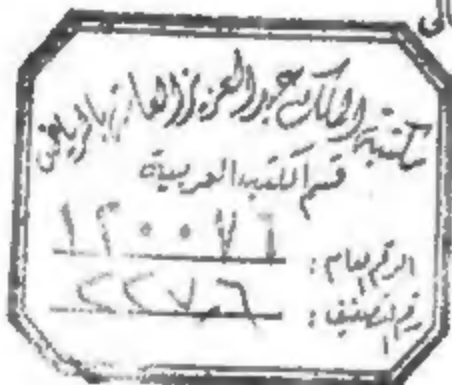 مكتبة الملك عبد العزيز العامة بالرياض
قسم الكتب العربية
الرقم العام: ١٢٠٠٧٦
رقم التصنيف: